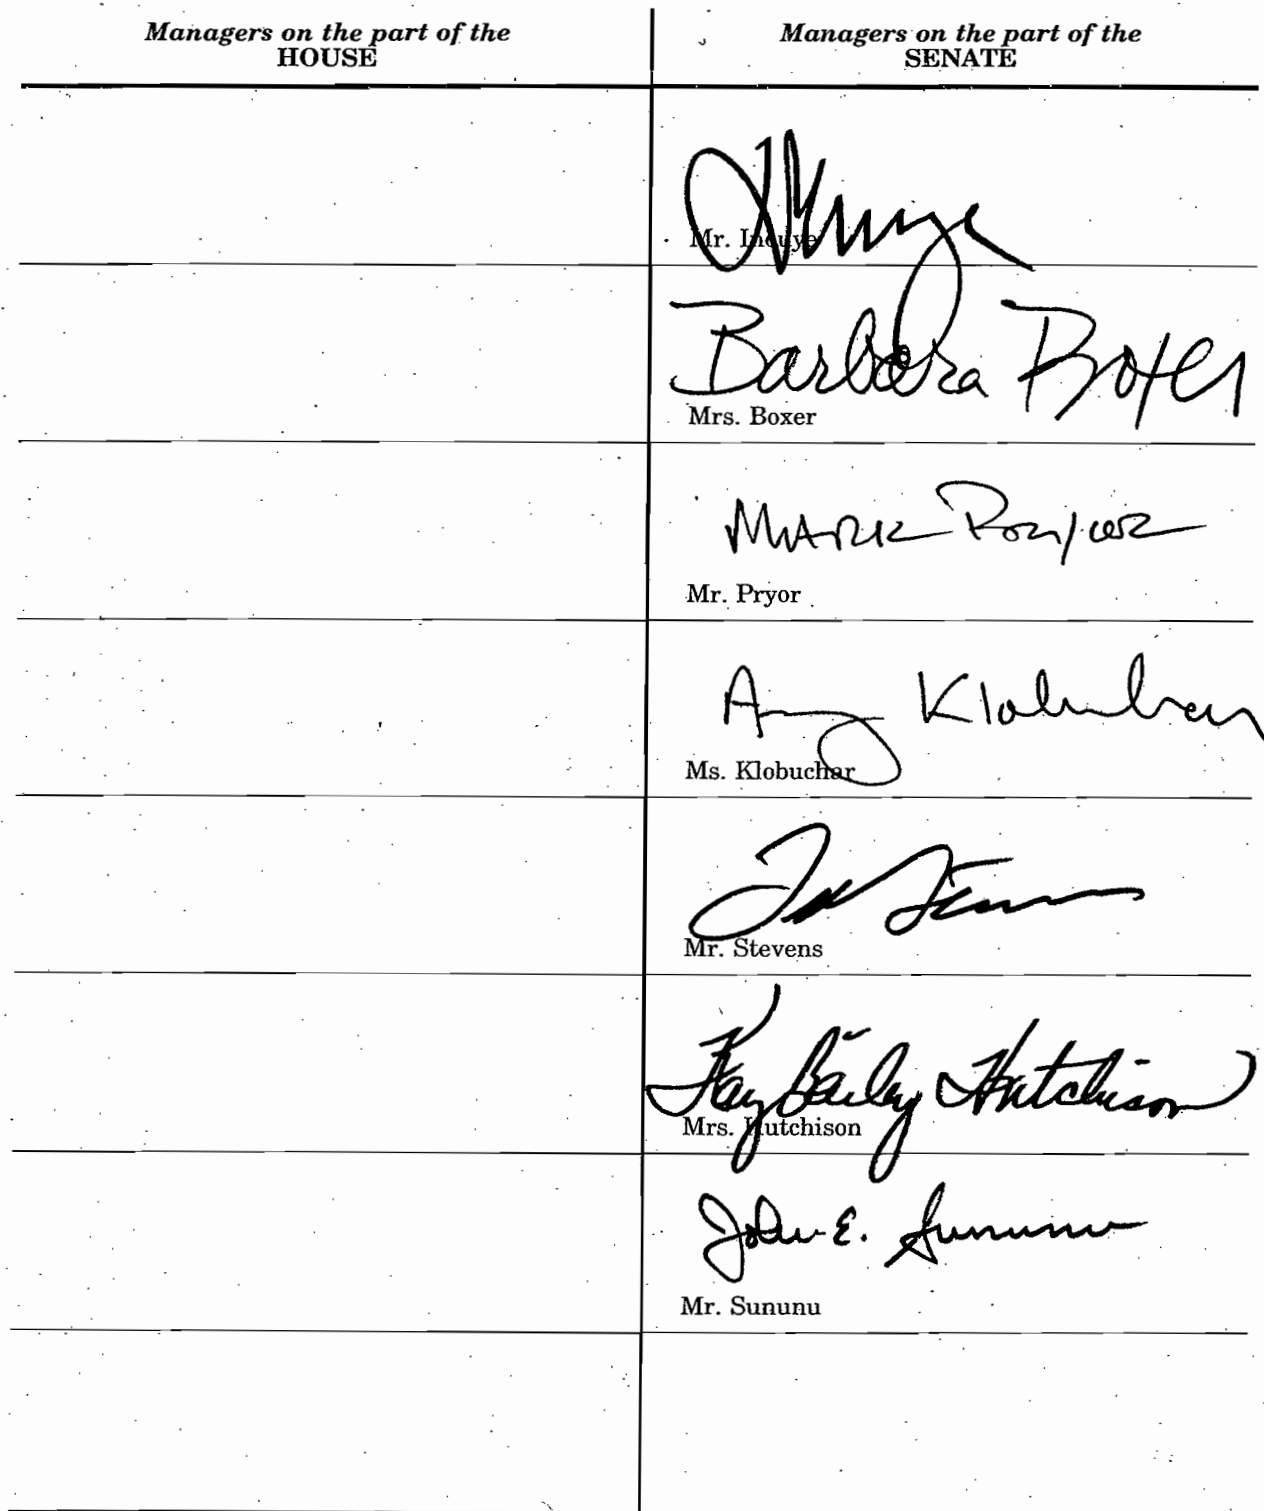 Managers on the part of the
HOUSE
Managers on the part of the
SENATE
Mr. Inouye
Barbara Boxer
Mrs. Boxer
Mark Pryor
Mr. Pryor
Amy Klobuchar
Ms. Klobuchar
Ted Stevens
Mr. Stevens
Kay Bailey Hutchison
Mrs. Hutchison
John E. Sununu
Mr. Sununu